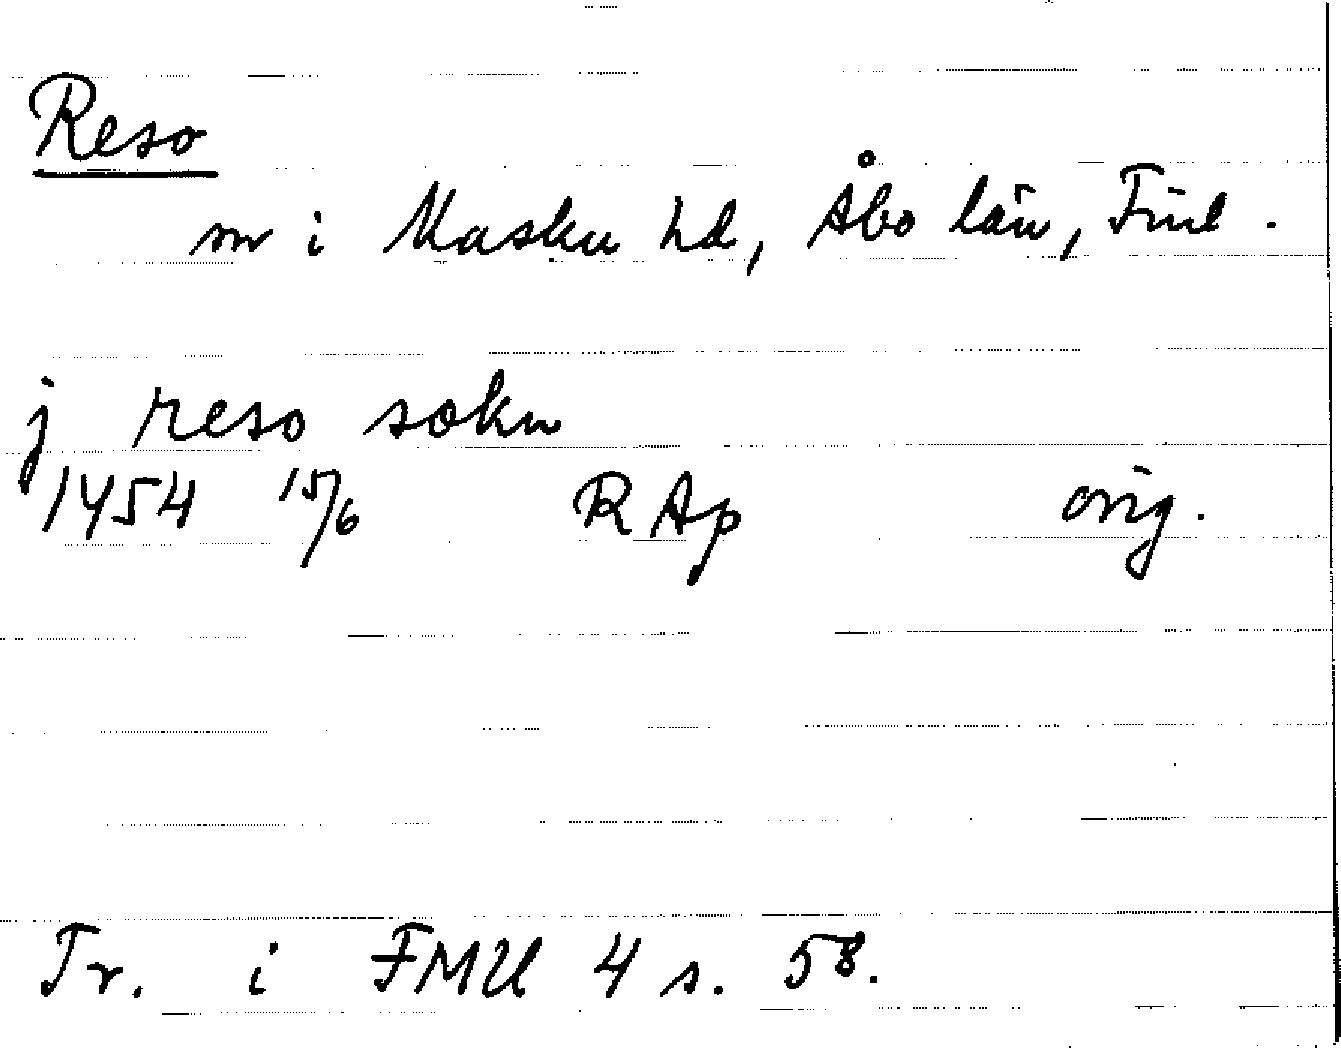 Reso
sn i Masku hd, Åbo län, Finl.
j reso sokn
1454 15/6 RAp orig.
Tr. i FMU 4 s. 58.